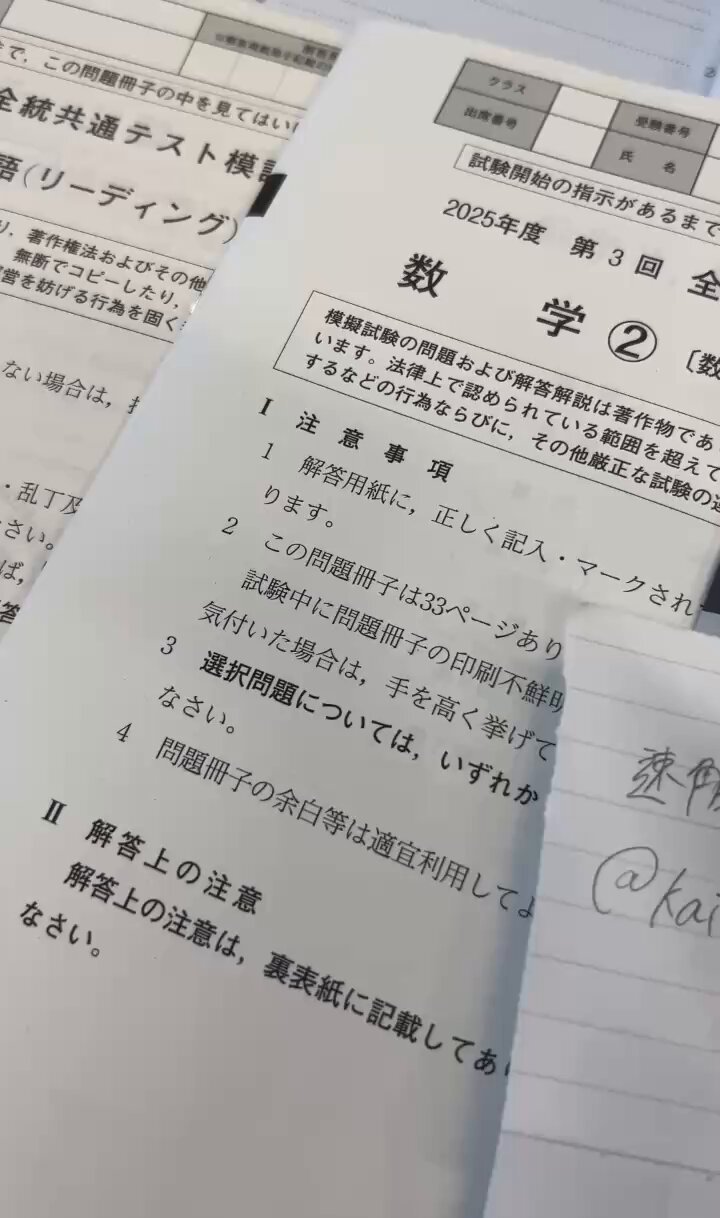 で，この問題冊子の中を見てはい
全統共通テスト模試
語(リーディング)
り，著作権法およびその他
無断でコピーしたり，
営を妨げる行為を固く
ない場合は，
・乱丁及
さい。
クラス
出席番号
受験番号
氏 名
試験開始の指示があるまで
2025年度 第3回 全
数 学 ② 〔数
模擬試験の問題および解答解説は著作物であ
います。法律上で認められている範囲を超えて
するなどの行為ならびに，その他厳正な試験の運
I 注意事項
1 解答用紙に，正しく記入・マークされ
ります。
2 この問題冊子は33ページあり
試験中に問題冊子の印刷不鮮明
気付いた場合は，手を高く挙げて
3 選択問題については，いずれか
なさい。
4 問題冊子の余白等は適宜利用してよ
II 解答上の注意
解答上の注意は，裏表紙に記載してあり
なさい。
速解
@kai